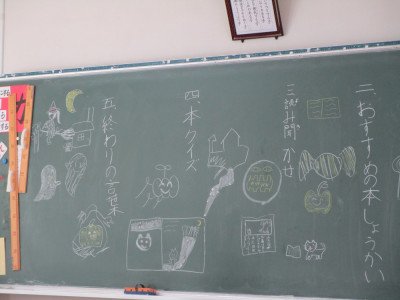 二、おすすめの本しょうかい
三、読み聞かせ
四、本クイズ
五、終わりの言葉